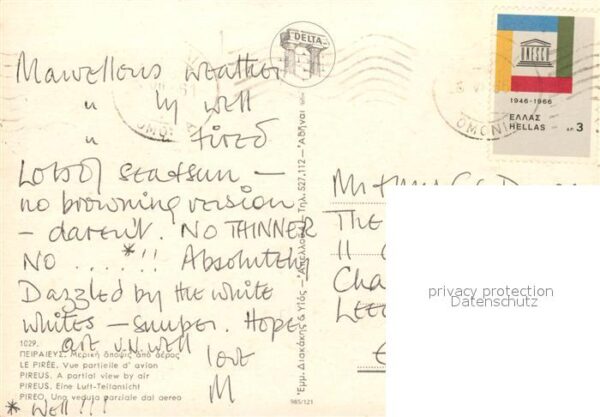 Marvellous weather
" try well
" tired
Lots of sea + sun —
no browning version
— daren't. NO THINNER
NO .... *!! Absolutely
Dazzled by the white
whites — super. Hope
are v.v. well
love
M
* Well!!!
1029.
ΠΕΙΡΑΙΕΥΣ. Μερική ἄποψις ἀπό ἀέρος
LE PIRÉE. Vue partielle d'avion
PIREUS. A partial view by air
PIREUS. Eine Luft-Teilansicht
PIREO. Una veduta parziale dal aereo
DELTA
Ἐμμ. Διακάκης & Υἱός - Ἀπελλοῦ Τηλ. 527.112 - Ἀθῆναι
985/121
UNESCO
1946-1966
ΕΛΛΑΣ
HELLAS ΔΡ 3
OMONI
The
11
Cha
LEE
privacy protection
Datenschutz